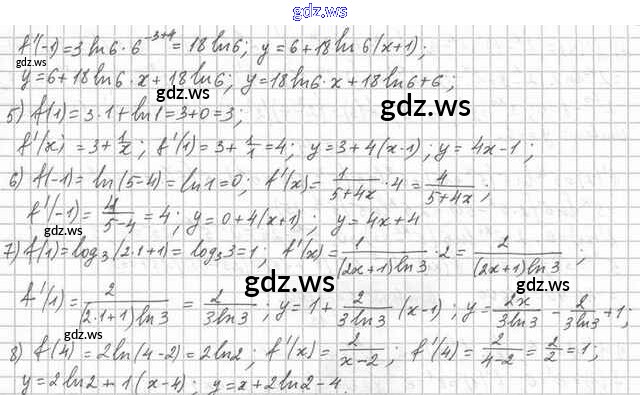 gdz.ws
f'(-1)=3 ln6·6^(-3+4)=18 ln6; y=6+18 ln6(x+1);
gdz.ws gdz.ws
y=6+18 ln6·x+18 ln6; y=18 ln6·x+18 ln6+6;
gdz.ws
5) f(1)=3·1+ln1=3+0=3;
f'(x)=3+1/x; f'(1)=3+1/1=4; y=3+4(x-1); y=4x-1;
gdz.ws gdz.ws
6) f(-1)=ln(5-4)=ln1=0; f'(x)=1/(5+4x)·4=4/(5+4x);
f'(-1)=4/(5-4)=4; y=0+4(x+1); y=4x+4
gdz.ws
7) f(1)=log₃(2·1+1)=log₃3=1; f'(x)=1/((2x+1)ln3)·2=2/((2x+1)ln3);
gdz.ws gdz.ws
f'(1)=2/((2·1+1)ln3)=2/(3ln3); y=1+2/(3ln3)(x-1); y=2x/(3ln3)-2/(3ln3)+1;
gdz.ws gdz.ws
8) f(4)=2ln(4-2)=2ln2; f'(x)=2/(x-2); f'(4)=2/(4-2)=2/2=1;
y=2ln2+1(x-4); y=x+2ln2-4.
gdz.ws